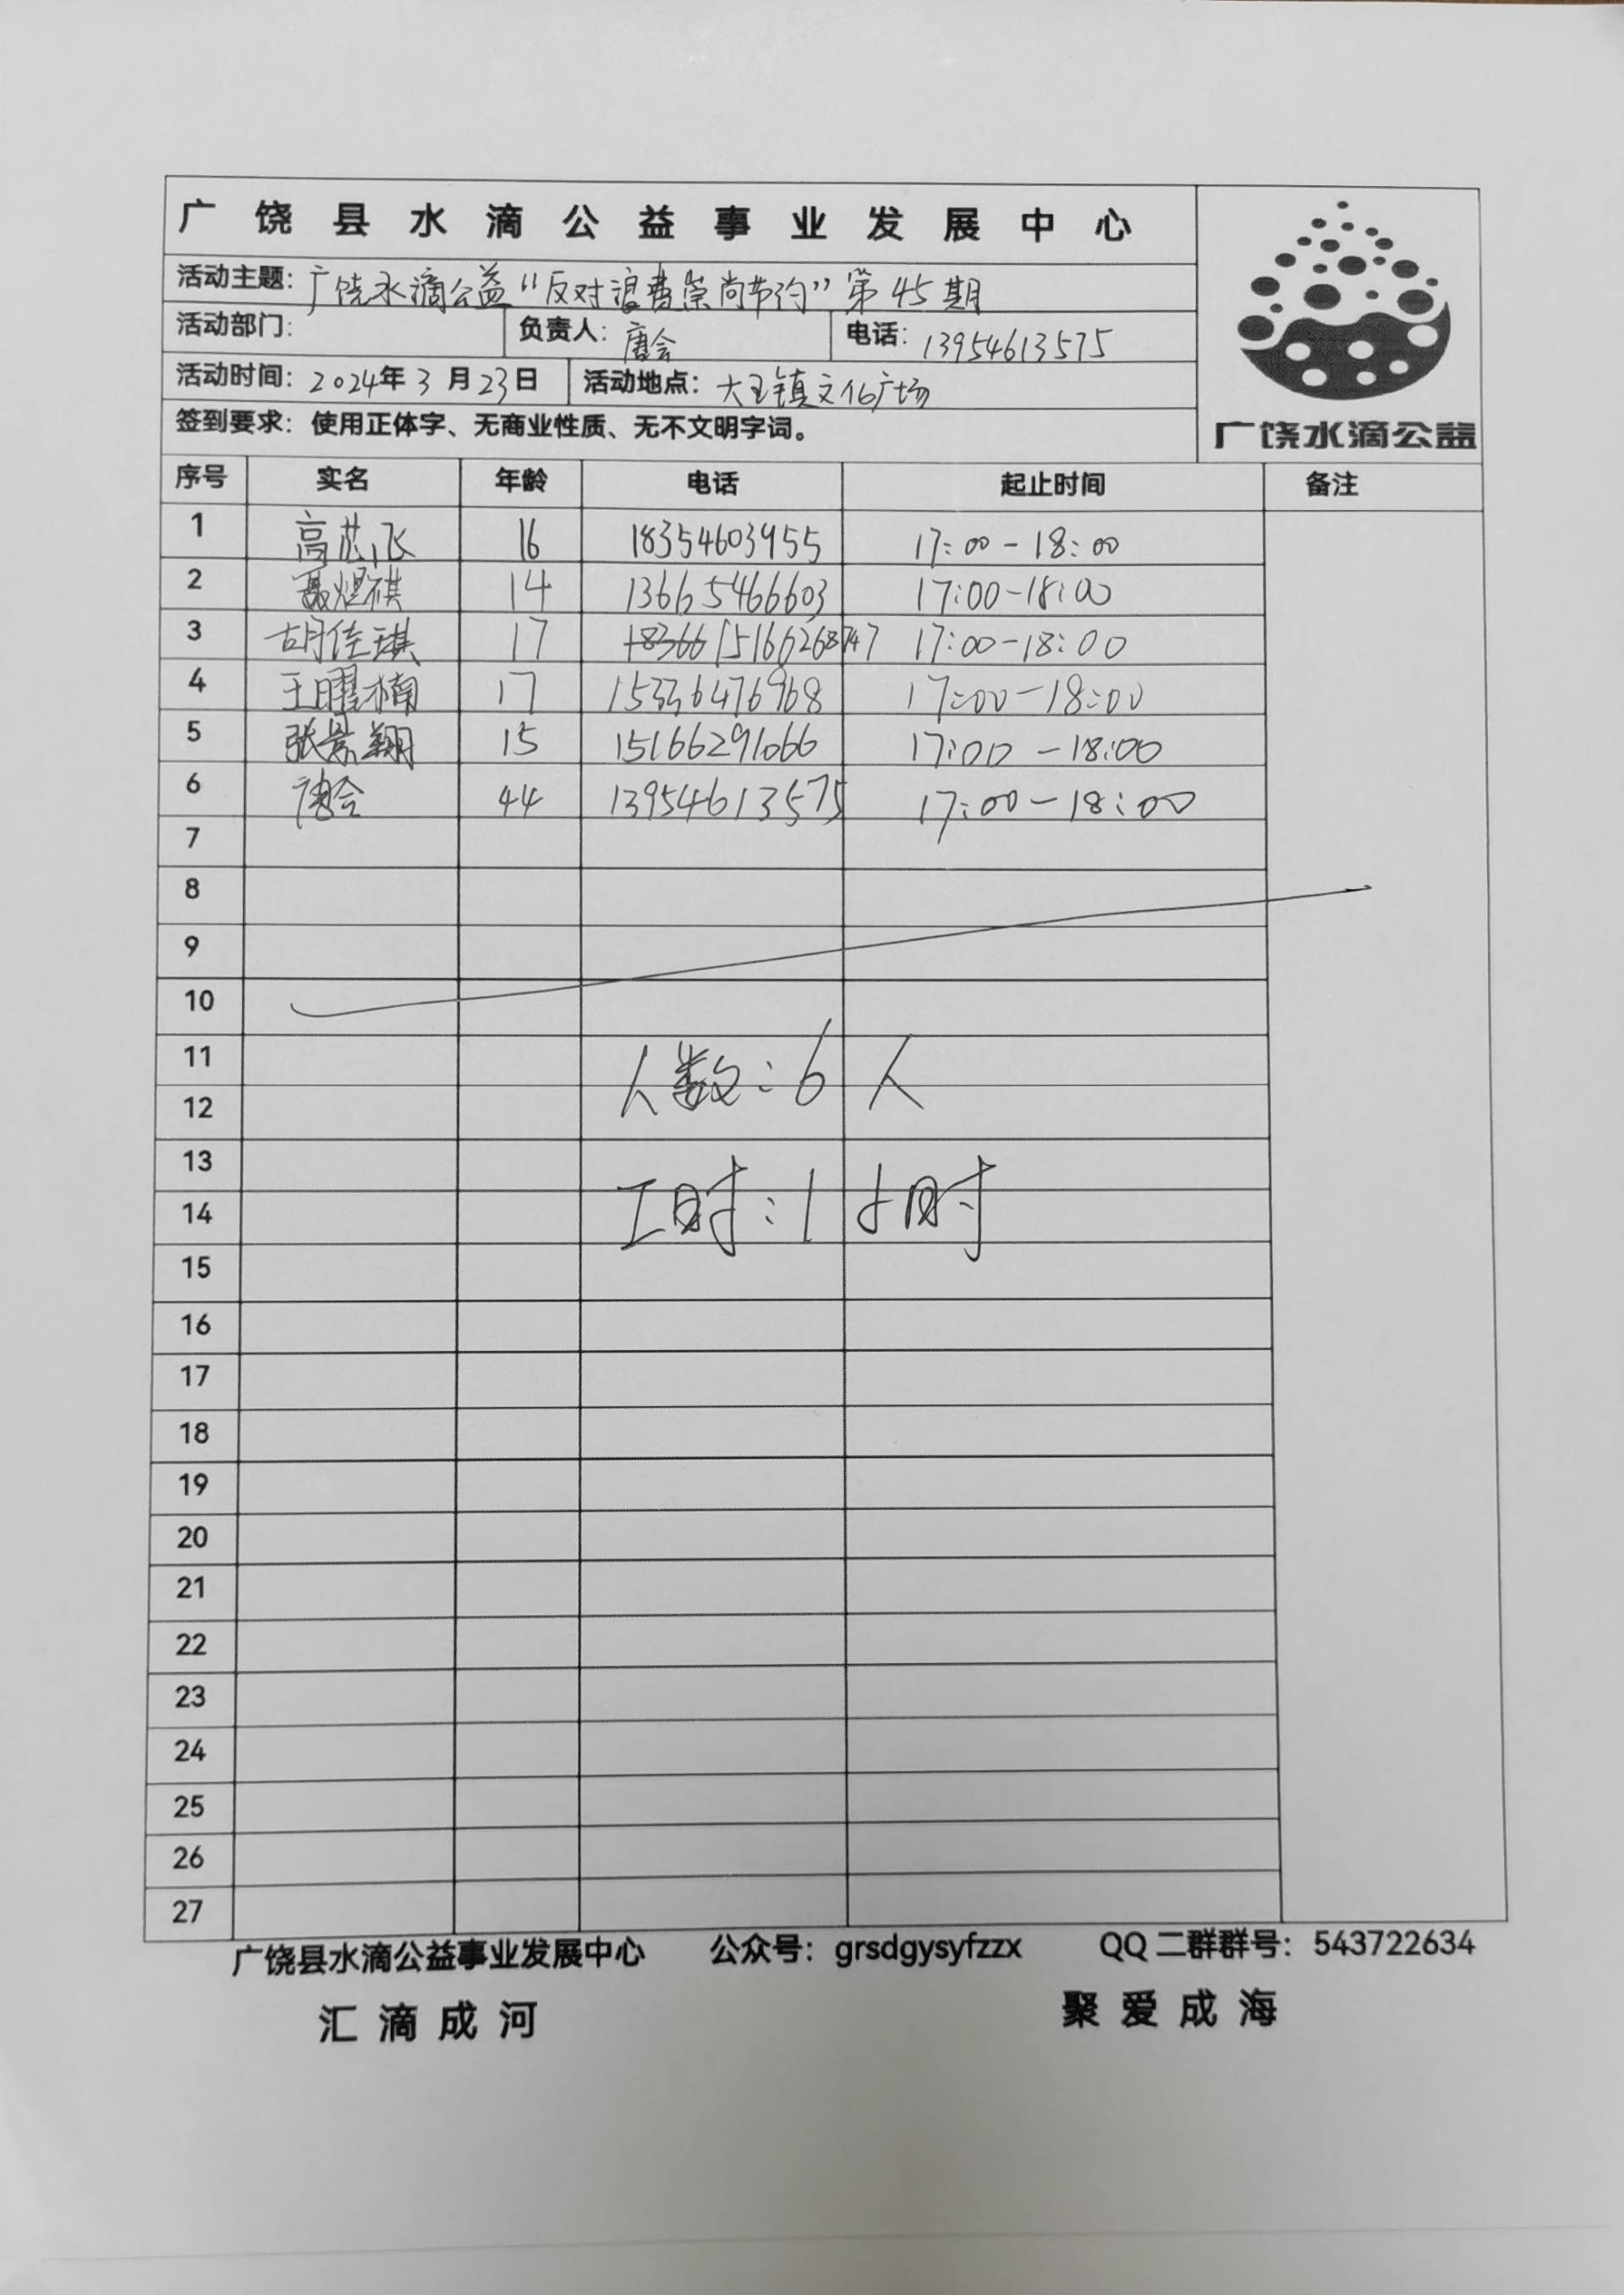 广饶县水滴公益事业发展中心
活动主题：广饶水滴公益“反对浪费崇尚节约”第45期
活动部门： 负责人：唐会 电话：13954613575
活动时间：2024年3月23日 活动地点：大王镇文化广场
签到要求：使用正体字、无商业性质、无不文明字词。
广饶水滴公益
序号 实名 年龄 电话 起止时间 备注
1 高芯飞 16 18354603955 17:00-18:00
2 聂煜祺 14 13665466603 17:00-18:00
3 胡佳琪 17 18366 15166268747 17:00-18:00
4 王曜楠 17 15336476968 17:00-18:00
5 张景翔 15 15166291066 17:00-18:00
6 唐会 44 13954613575 17:00-18:00
7
8
9
10
11
人数：6人
12
13
工时：1小时
14
15
16
17
18
19
20
21
22
23
24
25
26
27
广饶县水滴公益事业发展中心 公众号：grsdgysyfzzx QQ二群群号：543722634
汇滴成河 聚爱成海